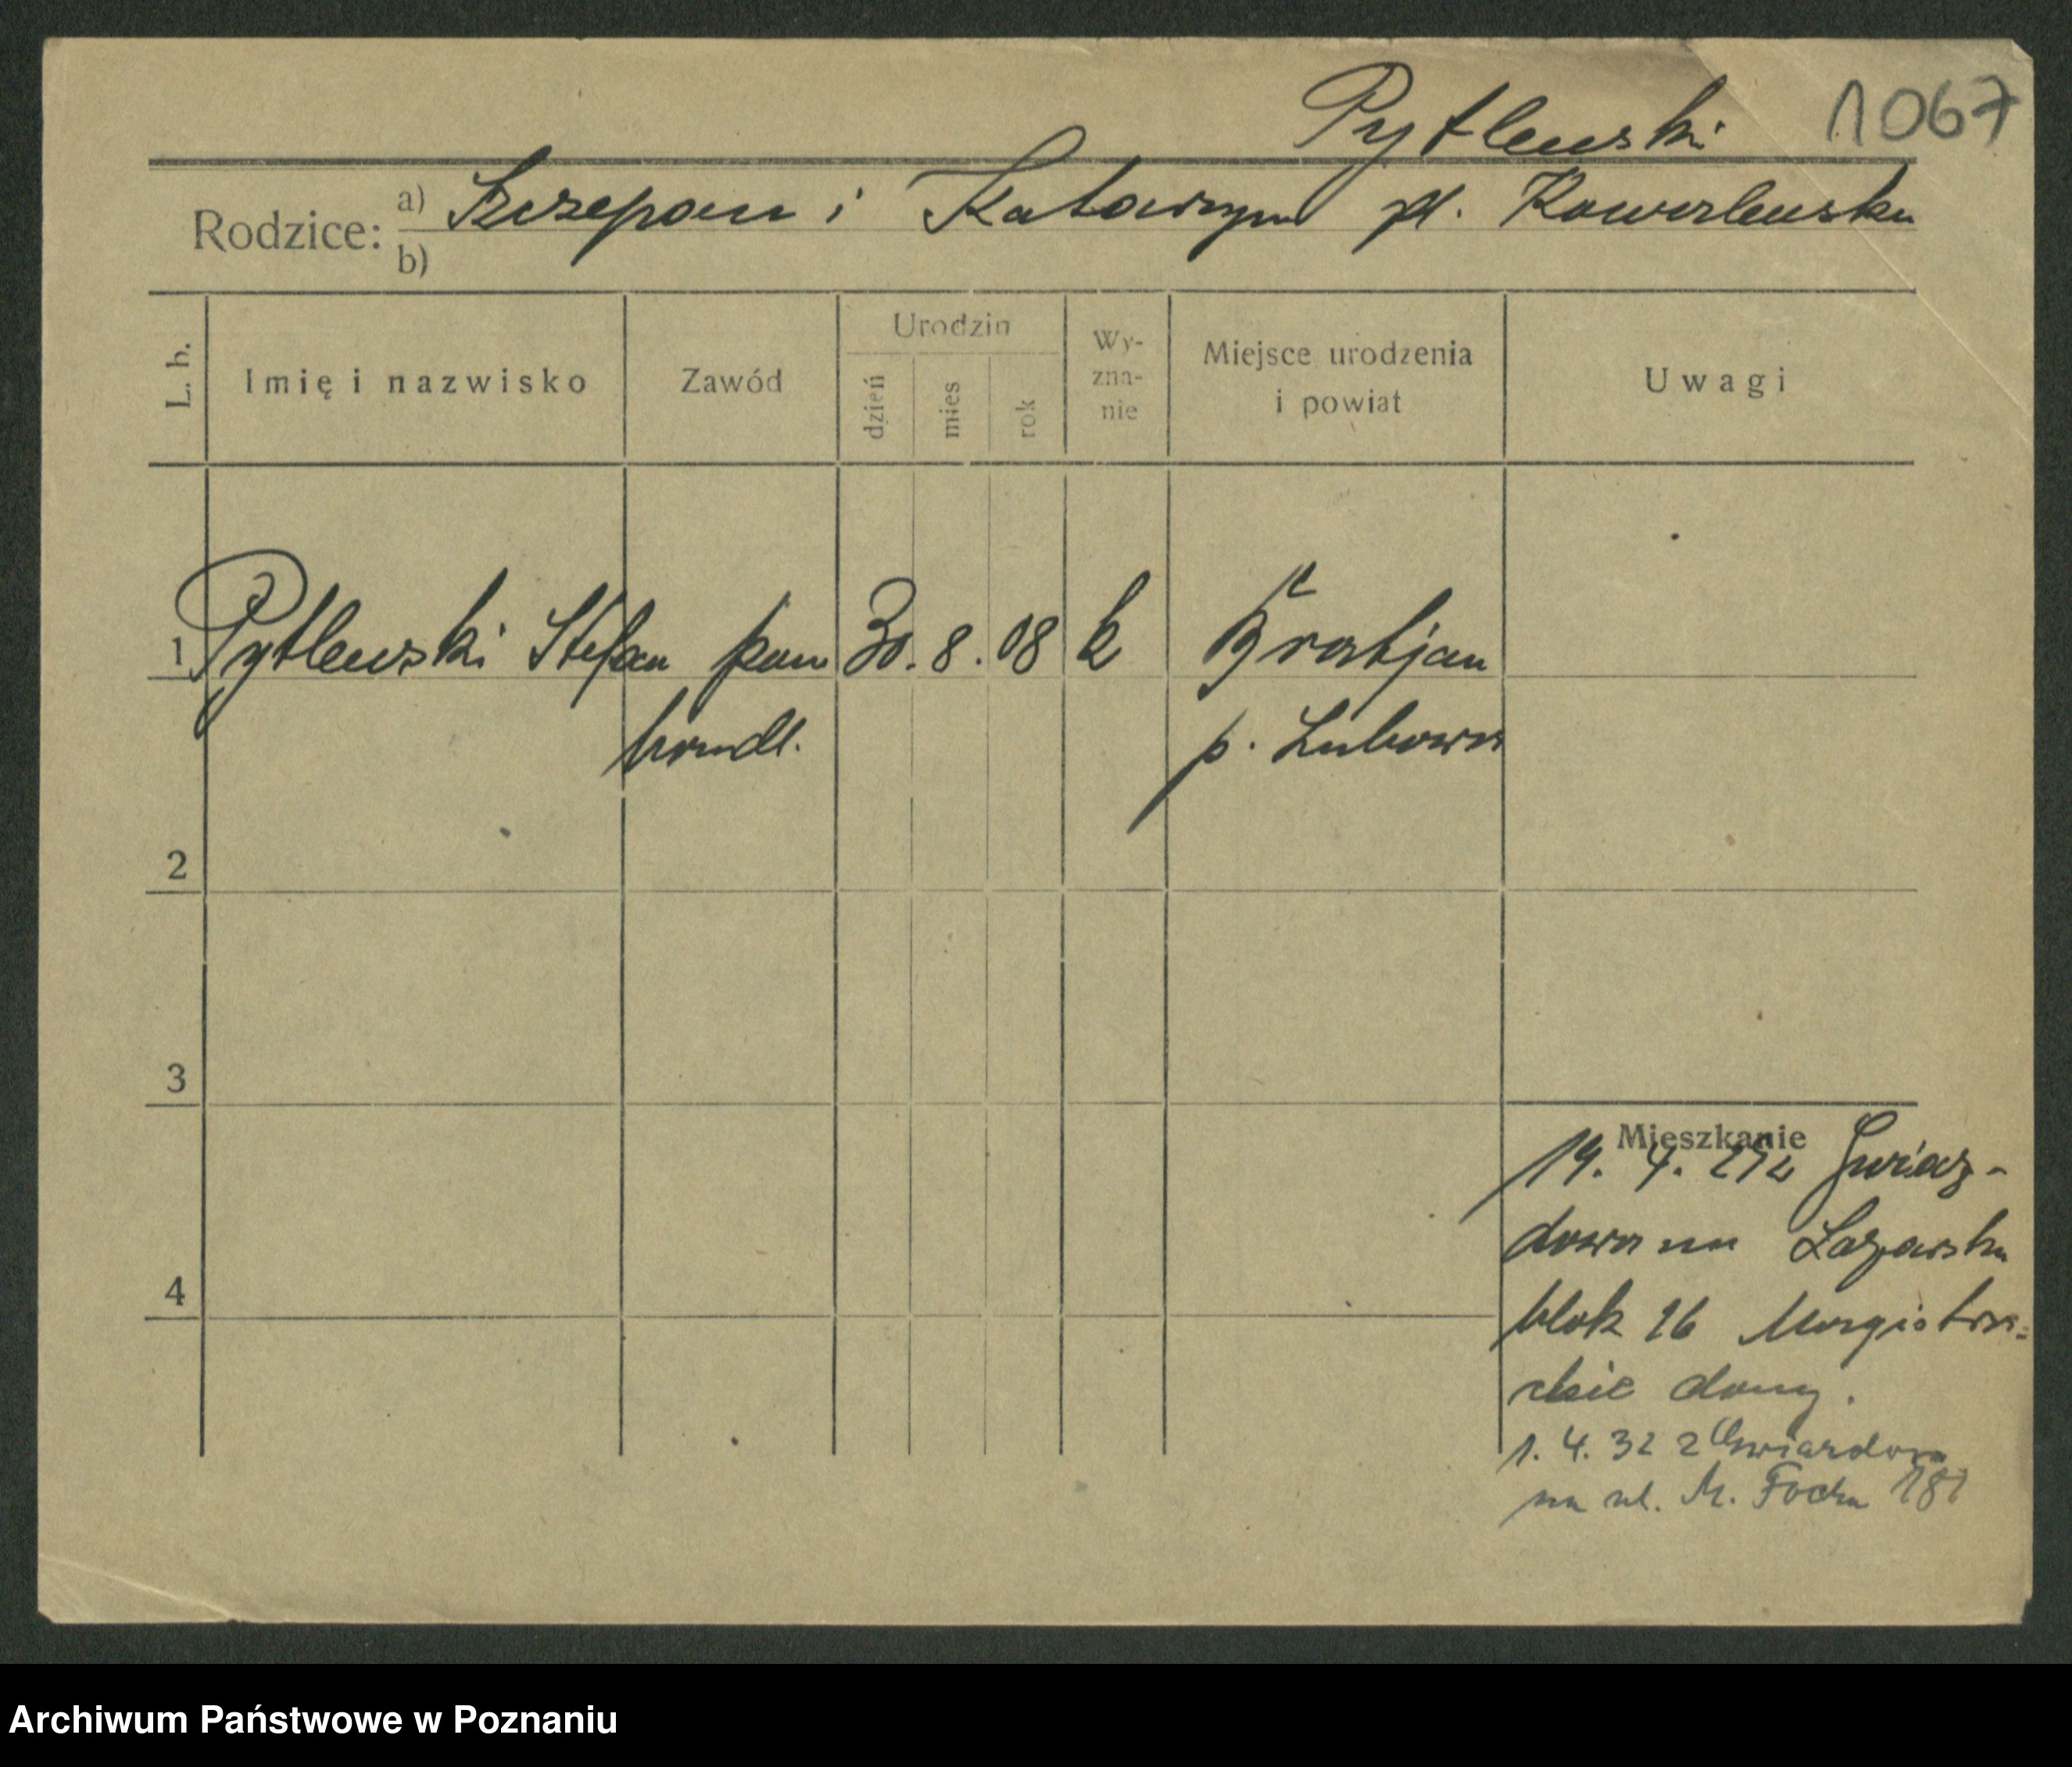 Pytlewski 1067
Rodzice: a) Szczepan i Katarzyna
b)
L. b. Imię i nazwisko Zawód Urodzin dzień mies rok Wy-zna-nie Miejsce urodzenia i powiat Uwagi
1 Pytlewski Stefan pom 30. 8. 08 k
handl. p. Lubowo
2
3
4
Mieszkanie
19. 4.
blok 16 Magistra-
ckie domy.
1. 4. 32 z Gwiazdowa
na ul. M. Focha 181
Archiwum Państwowe w Poznaniu